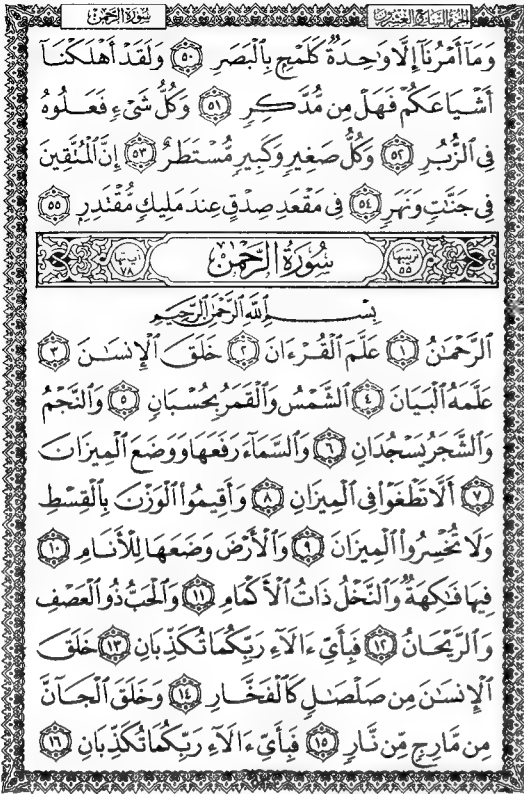 سُورَةُ الرَّحْمٰن
الجزء السابع والعشرون
وَمَآ أَمْرُنَآ إِلَّا وَٰحِدَةٌ كَلَمْحٍۭ بِٱلْبَصَرِ ٥٠ وَلَقَدْ أَهْلَكْنَآ
أَشْيَاعَكُمْ فَهَلْ مِن مُّدَّكِرٍ ٥١ وَكُلُّ شَىْءٍ فَعَلُوهُ
فِى ٱلزُّبُرِ ٥٢ وَكُلُّ صَغِيرٍ وَكَبِيرٍ مُّسْتَطَرٌ ٥٣ إِنَّ ٱلْمُتَّقِينَ
فِى جَنَّٰتٍ وَنَهَرٍ ٥٤ فِى مَقْعَدِ صِدْقٍ عِندَ مَلِيكٍ مُّقْتَدِرٍۭ ٥٥
ترتيبها ٥٥ سُورَةُ الرَّحْمٰن آياتها ٧٨
بِسْمِ ٱللَّهِ ٱلرَّحْمَٰنِ ٱلرَّحِيمِ
ٱلرَّحْمَٰنُ ١ عَلَّمَ ٱلْقُرْءَانَ ٢ خَلَقَ ٱلْإِنسَٰنَ ٣
عَلَّمَهُ ٱلْبَيَانَ ٤ ٱلشَّمْسُ وَٱلْقَمَرُ بِحُسْبَانٍ ٥ وَٱلنَّجْمُ
وَٱلشَّجَرُ يَسْجُدَانِ ٦ وَٱلسَّمَآءَ رَفَعَهَا وَوَضَعَ ٱلْمِيزَانَ
٧ أَلَّا تَطْغَوْا۟ فِى ٱلْمِيزَانِ ٨ وَأَقِيمُوا۟ ٱلْوَزْنَ بِٱلْقِسْطِ
وَلَا تُخْسِرُوا۟ ٱلْمِيزَانَ ٩ وَٱلْأَرْضَ وَضَعَهَا لِلْأَنَامِ ١٠
فِيهَا فَٰكِهَةٌ وَٱلنَّخْلُ ذَاتُ ٱلْأَكْمَامِ ١١ وَٱلْحَبُّ ذُو ٱلْعَصْفِ
وَٱلرَّيْحَانُ ١٢ فَبِأَىِّ ءَالَآءِ رَبِّكُمَا تُكَذِّبَانِ ١٣ خَلَقَ
ٱلْإِنسَٰنَ مِن صَلْصَٰلٍ كَٱلْفَخَّارِ ١٤ وَخَلَقَ ٱلْجَآنَّ
مِن مَّارِجٍ مِّن نَّارٍ ١٥ فَبِأَىِّ ءَالَآءِ رَبِّكُمَا تُكَذِّبَانِ ١٦